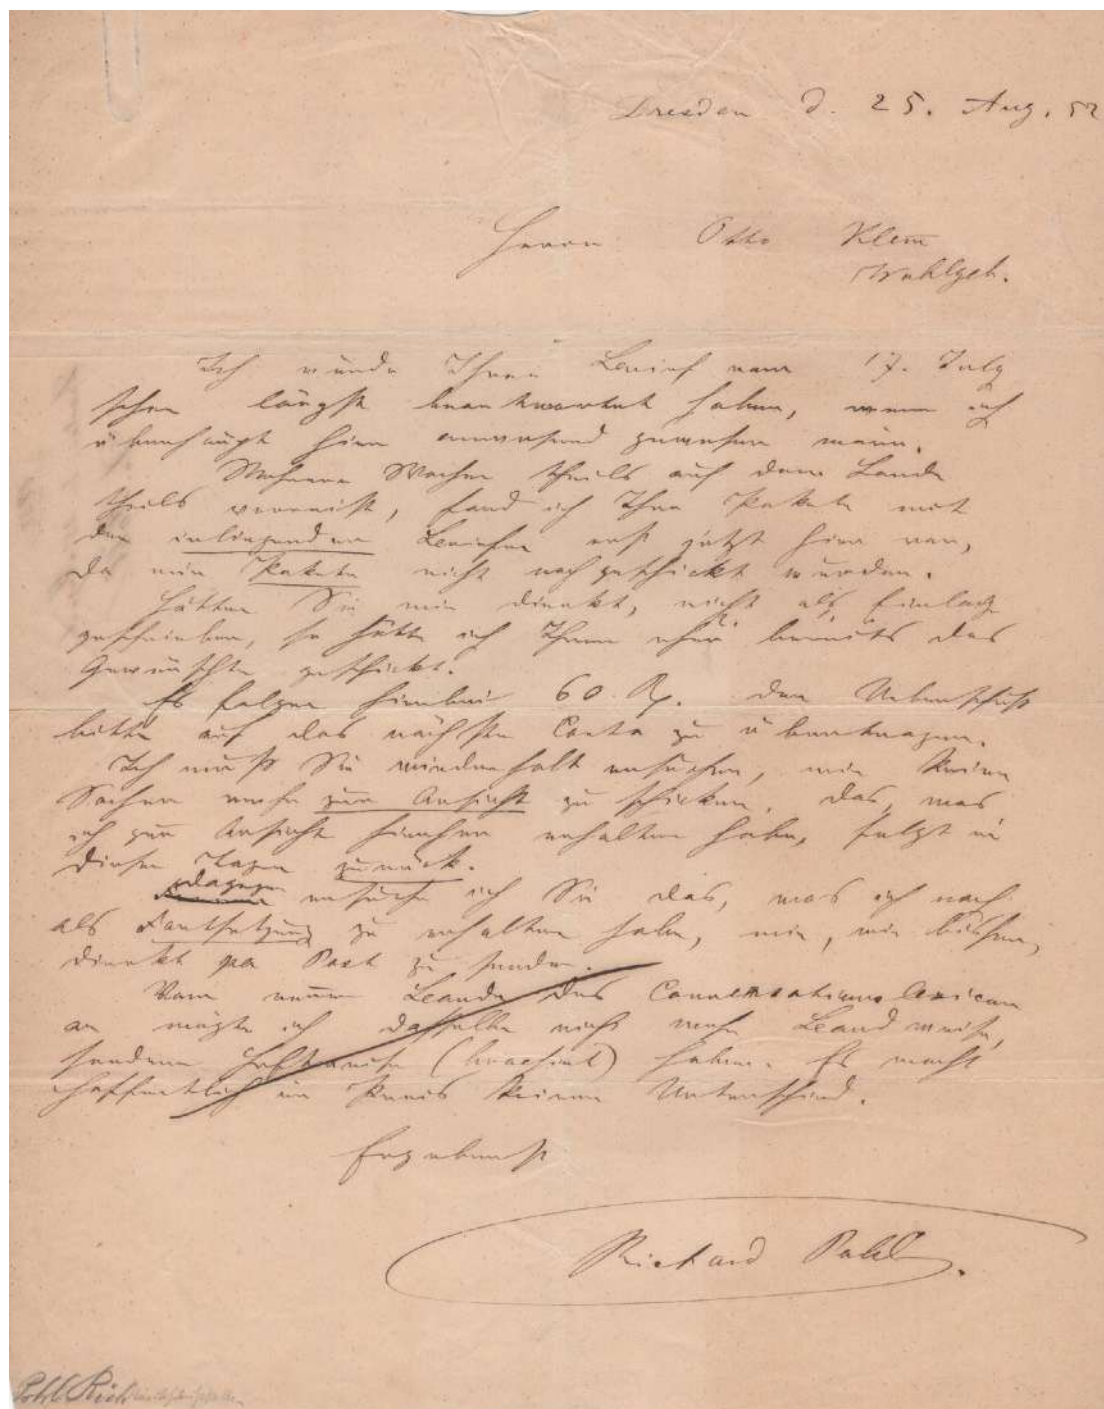 Dresden d. 25. Aug. 52
Herrn Otto Klem̄
Wohlgeb.
Ich würde Ihren Brief vom 17. July
schon längst beantwortet haben, wenn ich
überhaupt hier anwesend gewesen wäre.
Mehrere Wochen theils auf dem Lande
theils verreist, fand ich Ihre Pakete mit
den inliegenden Briefen erst jetzt hier vor,
da mir Pakete nicht nachgeschickt wurden.
Hätten Sie mir direkt, nicht als Einlage
geschrieben, so hätte ich Ihnen bereits das
Gewünschte geschickt.
Es folgen hierbei 60 Rp. den Ueberschuß
bitte auf das nächste Conto zu übertragen.
Ich muß Sie wiederholt ersuchen, mir keine
Sachen mehr zur Ansicht zu schicken. Das, was
ich zur Ansicht hierher erhalten habe, folgt in
diesen Tagen zurück.
dagegen ersuche ich Sie das, was ich noch
als Fortsetzung zu erhalten habe, mir, wie bisher,
direkt per Post zu senden.
Vom neuen Bande des Conversationslexicon
an möchte ich dasselbe nicht mehr Bandweise,
sondern Heftweise (brochirt) haben. Es macht
hoffentlich im Preis keinen Unterschied.
Ergebenst
Richard Pohl.
Pohl Rich